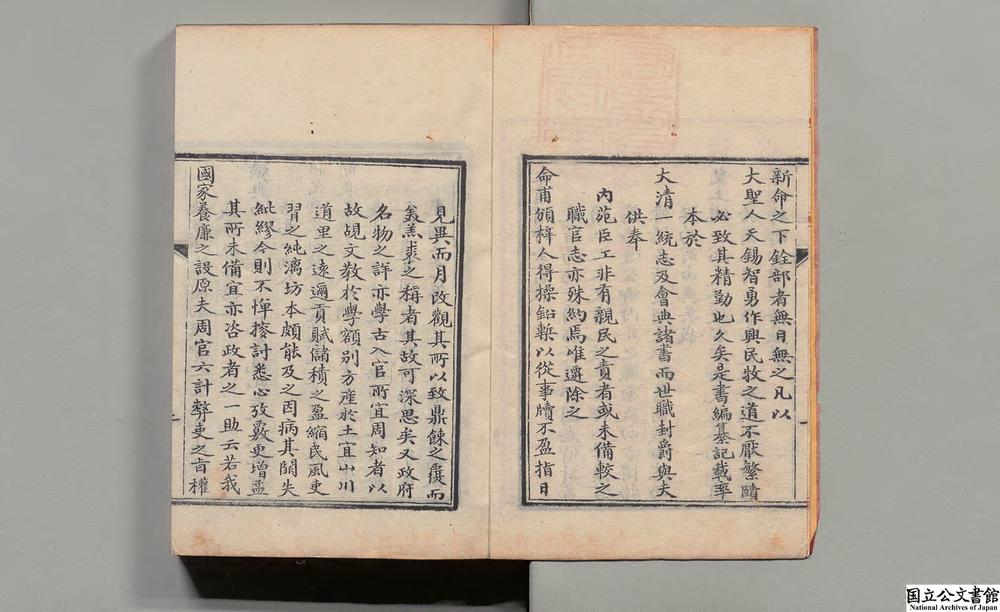 新命之下銓部者無日無之凡以
大聖人天錫智勇作興民牧之道不厭繁賾
必致其精勤也久矣是書編纂記載率
本於
大清一統志及會典諸書而世職封爵與夫
供奉
內苑臣工非有親民之責者或未備較之
職官志亦殊約焉唯遷除之
命甫頒梓人得操鉛槧以從事牘不盈指日
見異而月改觀其所以致鼎餗之覆而
羔裘之稱者其故可深思矣又政府
名物之詳亦學古入官所宜周知者以
故覘文教於學額别方產於土宜山川
道里之遠邇貢賦儲積之盈縮民風吏
習之純漓坊本頗能及之因病其闕失
紕繆今則不憚搜討悉心攷覈更增益
其所未備宜亦咨政者之一助云若我
國家養廉之設原夫周官六計弊吏之旨權
一
二
国立公文書館
National Archives of Japan